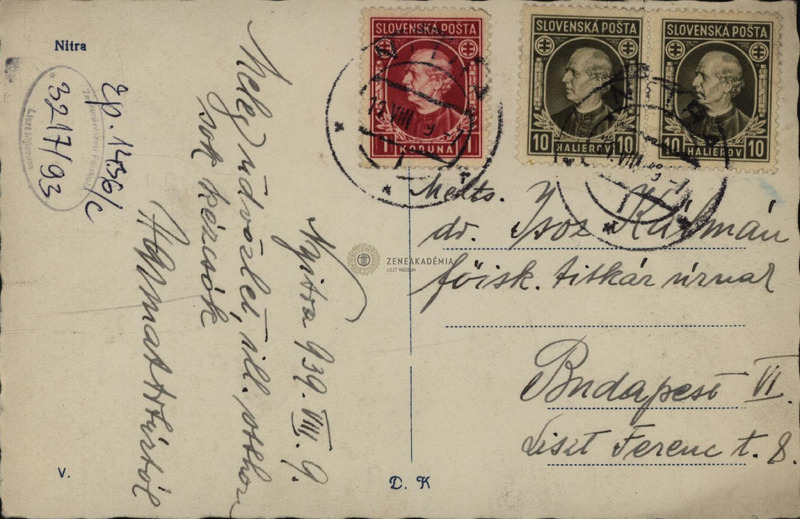 Nitra
SLOVENSKÁ POŠTA
1 KORUNA 1
SLOVENSKÁ POŠTA
10 HALIEROV 10
SLOVENSKÁ POŠTA
10 HALIEROV 10
Ep. 1436/c
3217/93
Nyitra 939. VIII. 9.
Mély üdvözlet, ill. otthon
sok kézcsók
Melts.
dr. Isoz Kálmán
főisk. titkár úrnak
Budapest VI.
Liszt Ferenc t. 8.
ZENEAKADÉMIA
LISZT MÚZEUM
V.
D. K